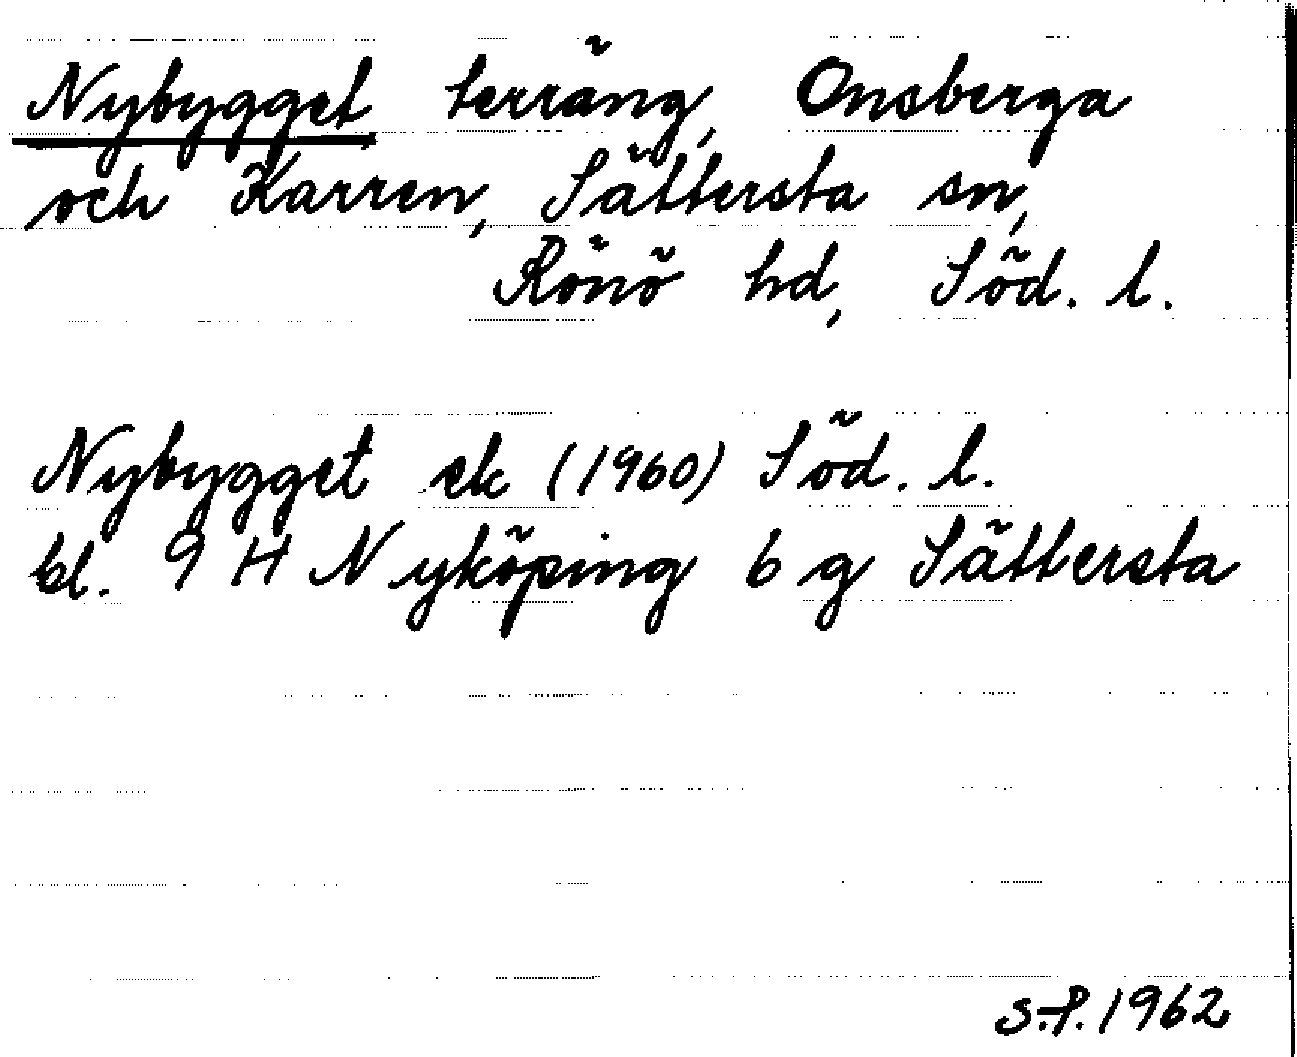 Nybygget terräng, Onsberga
och Karren, Sättersta sn,
Rönö hd, Söd. l.
Nybygget ek (1960) Söd. l.
bl. 9 H Nyköping 6 g Sättersta
S.P. 1962